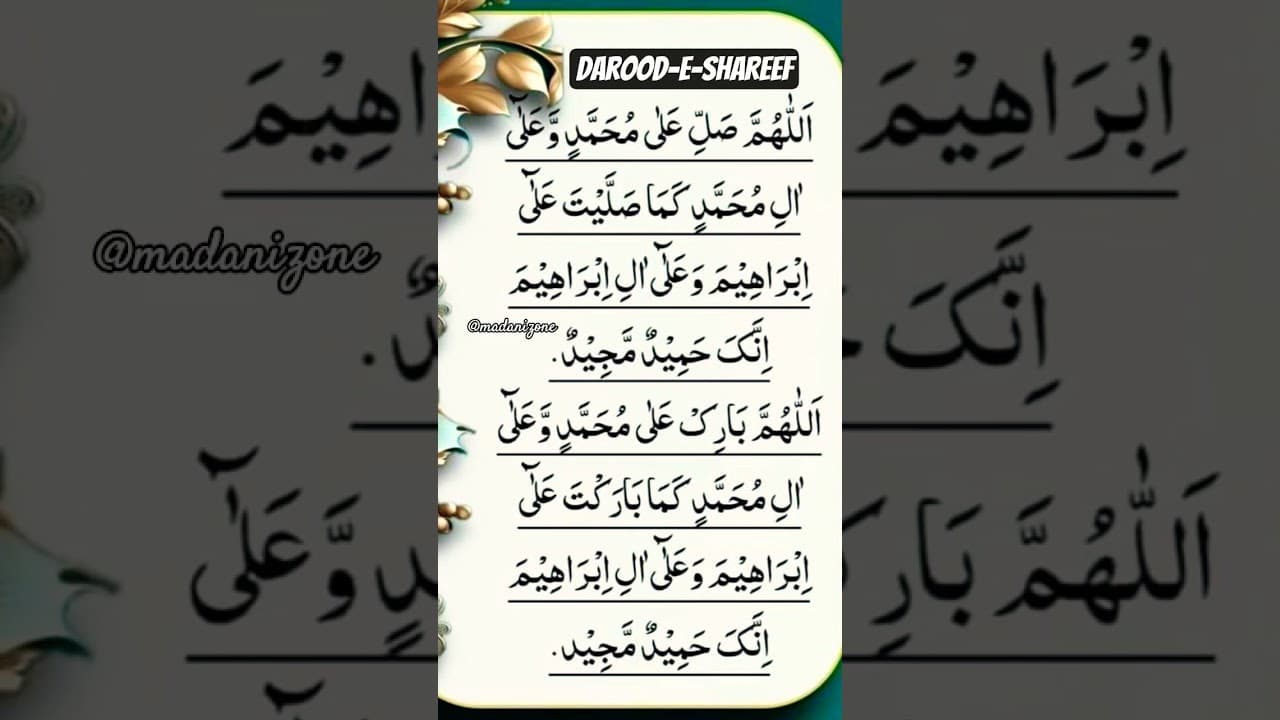 DAROOD-E-SHAREEF
اَللّٰهُمَّ صَلِّ عَلٰی مُحَمَّدٍ وَّعَلٰٓی
اٰلِ مُحَمَّدٍ کَمَا صَلَّیْتَ عَلٰٓی
اِبْرَاهِیْمَ وَعَلٰٓی اٰلِ اِبْرَاهِیْمَ
@madanizone
اِنَّکَ حَمِیْدٌ مَّجِیْدٌ.
اَللّٰهُمَّ بَارِکْ عَلٰی مُحَمَّدٍ وَّعَلٰٓی
اٰلِ مُحَمَّدٍ کَمَا بَارَکْتَ عَلٰٓی
اِبْرَاهِیْمَ وَعَلٰٓی اٰلِ اِبْرَاهِیْمَ
اِنَّکَ حَمِیْدٌ مَّجِیْد.
@madanizone
اِبْرَاهِیْمَ
اِنَّکَ
اَللّٰهُمَّ بَارِ
وَّعَلٰٓی